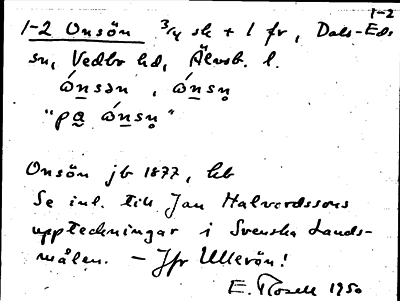 1-2
1-2 Onsön 3/4 sk + 1 fr, Dals-Eds
sn, Vedbo hd, Älvsb. l.
ώnsən , ώnsn̥
"pa ώnsn̥"
Onsön jb 1877, kb
Se inl. till Jan Halvordssons
uppteckningar i Svenska Lands-
målen. – Jfr Ullerön!
E. Rosell 1950